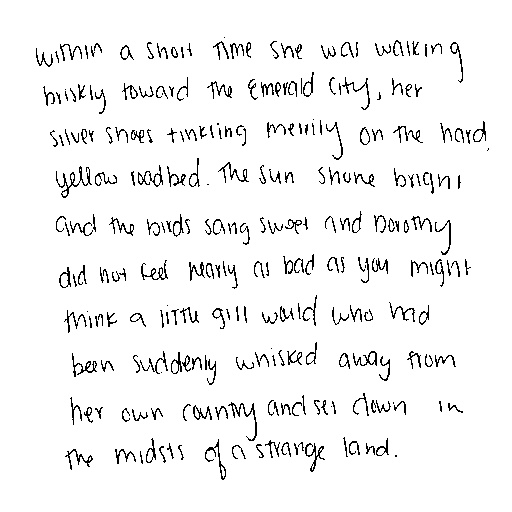 within a short time she was walking
briskly toward the Emerald City, her
silver shoes tinkling merrily on the hard,
yellow roadbed. The sun shone bright
and the birds sang sweet and Dorothy
did not feel nearly as bad as you might
think a little girl would who had
been suddenly whisked away from
her own country and set down in
the midsts of a strange land.